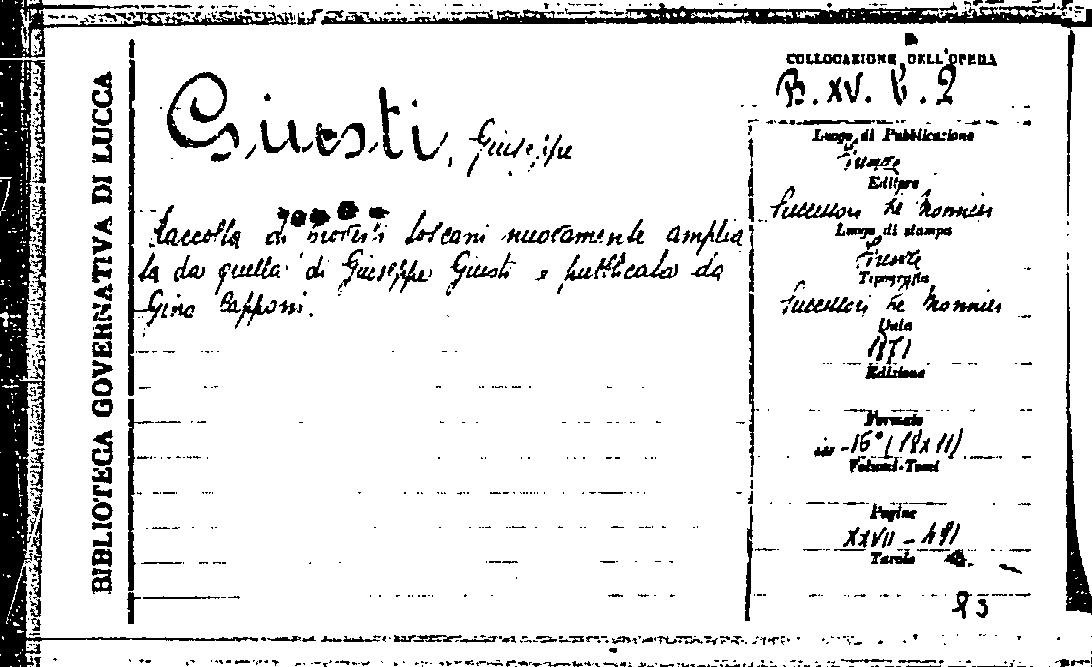 BIBLIOTECA GOVERNATIVA DI LUCCA
Giusti, Giuseppe
Raccolta di Toscani nuovamente amplia
ta da quella di Giuseppe Giusti e pubblicata da
Gino Capponi.
COLLOCAZIONE DELL'OPERA
B. XV. 2
Luogo di Pubblicazione
Firenze
Editore
Successori Le Monnier
Luogo di stampa
Firenze
Tipografia
Successori Le Monnier
Data
1871
Edizione
Formato
in-16° (18x11)
Volumi-Tomi
Pagine
XXVII - 481
Tavole